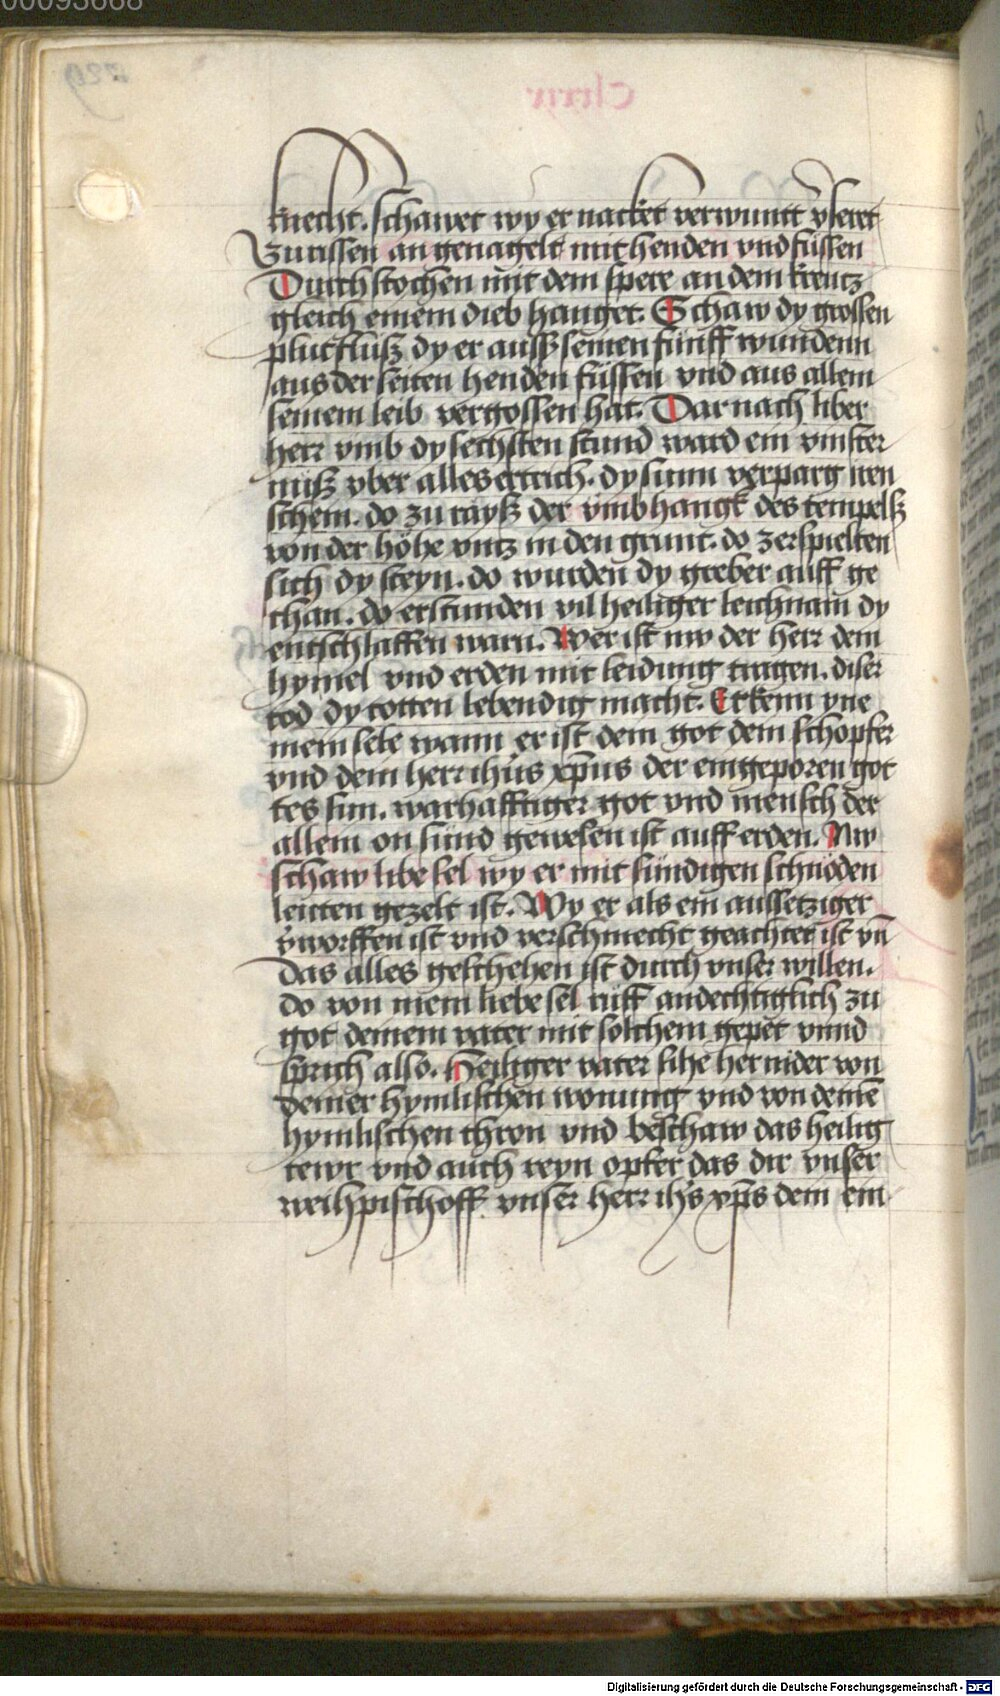 00093668
knecht. schawet wy er nacket verwuntt v̉seret
Zurissen an genagelt mit henden vnd füssen
Durch stochen mit dem spere an dem krentz
gleich einem dieb hanget. Schaw dy grossen
plutfluß dy er auß seinen fünff wundenn
aus der seiten henden füssen vnd aus allem
seinem leib vergossen hat. Dar nach liber
herr vmb dy sechsten stund ward ein vinster
nuß vber alles ertrich. dy sunn verparg iren
schein. do zu rayß der vmbhangk des tempelß
von der höhe vntz in den grunt. do zerspielten
sich dy steyn. do wurden dy greber auff ge
than. do erstunden vil heiliger leichnam dy
entschlaffen warn. Wer ist nw der herr dem
hymel vnd erden mit leidung tragen. diser
tod dy totten lebendig macht. Erkenn yne
mein sele wann er ist dein got dein schopfer
vnd dein herr ihũs xp̃us der eingeporen got
tes sun. warhafftiger got vnd mensch der
allein on sund gewesen ist auff erden. Nw
schaw libe sel wy er mit sündigen schnöden
leuten gezelt ist. Wy er als ein aussetziger
v̉worffen ist vnd verschmecht geachtet ist vñ
das alles geschehen ist durch vnser willen.
do von mein liebe sel ruff andechtiglich zu
got deinem vater mit solchem gepet vnnd
sprich also. Heiliger vater sihe her nider von
deiner hymlischen wonung vnd von deinē
hymlischen thron vnd beschaw das heilig
tewr vnd auch reyn opfer das dir vnser
weihpischoff vnser herr ih̃s xp̃s dein ein
Digitalisierung gefördert durch die Deutsche Forschungsgemeinschaft - DFG